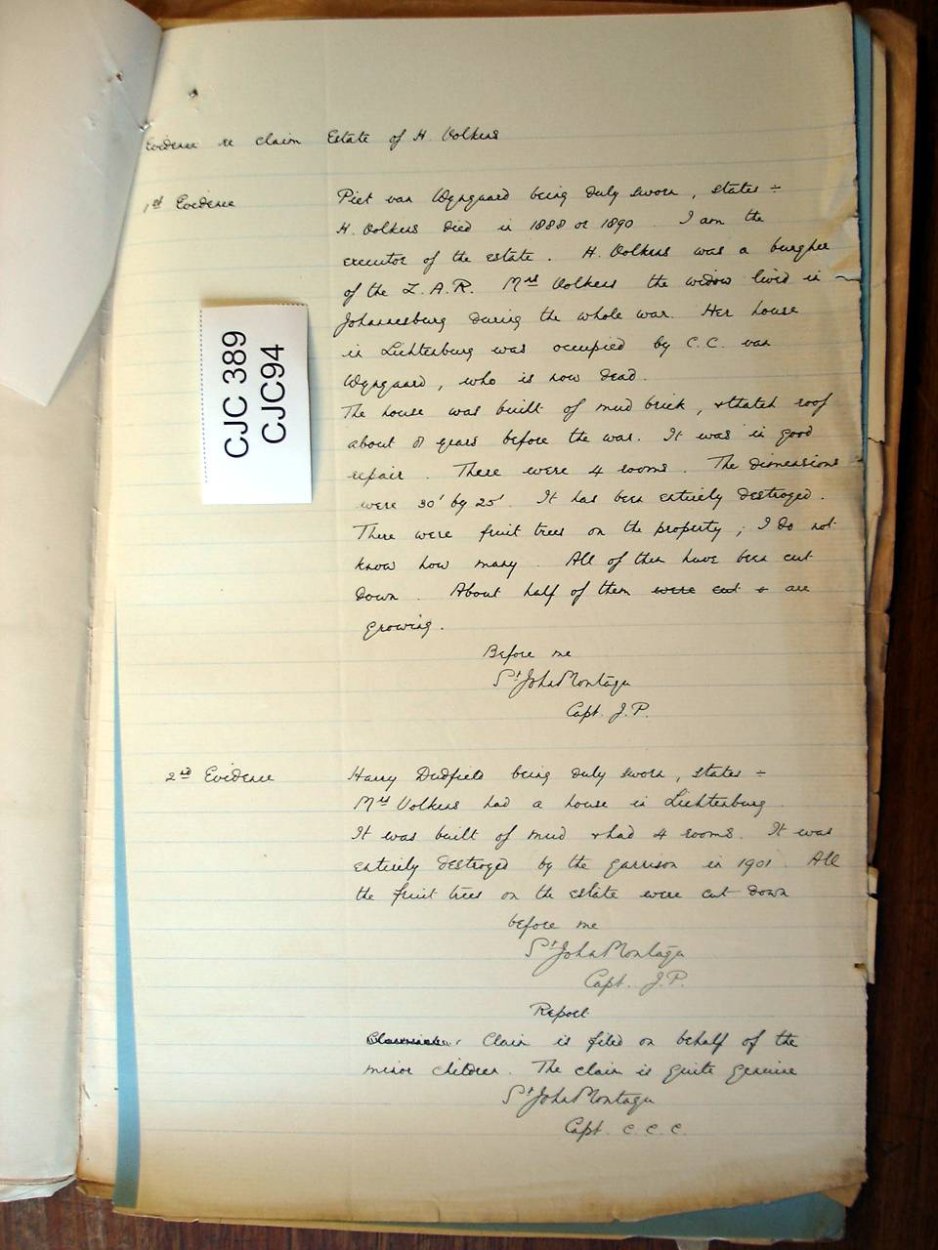 Evidence re claim Estate of H. Volkers
1st Evidence Piet van Wyngaard being duly sworn, states ÷
H. Volkers died in 1888 or 1890 I am the
executor of the estate. H. Volkers was a burgher
of the Z.A.R. Mrs Volkers the widow lived in
Johannesburg during the whole war. Her house
in Lichtenburg was occupied by C.C. van
Wyngaard, who is now dead.
The house was built of mud brick, & thatch roof
about 8 years before the war. It was in good
repair. There were 4 rooms. The dimensions
were 30' by 25'. It has been entirely destroyed.
There were fruit trees on the property; I do not
know how many. All of them have been cut
down. About half of them were cut & are
growing.
Before me
St John Montagu
Capt. J.P.
2nd Evidence Harry Dudfield being duly sworn, states ÷
Mrs Volkers had a house in Lichtenburg
It was built of mud & had 4 rooms. It was
entirely destroyed by the garrison in 1901. All
the fruit trees on the estate were cut down
before me
St John Montagu
Capt. J.P.
Report
Claim is filed on behalf of the
minor children. The claim is quite genuine
St John Montagu
Capt. C.C.C.
CJC 389
CJC94